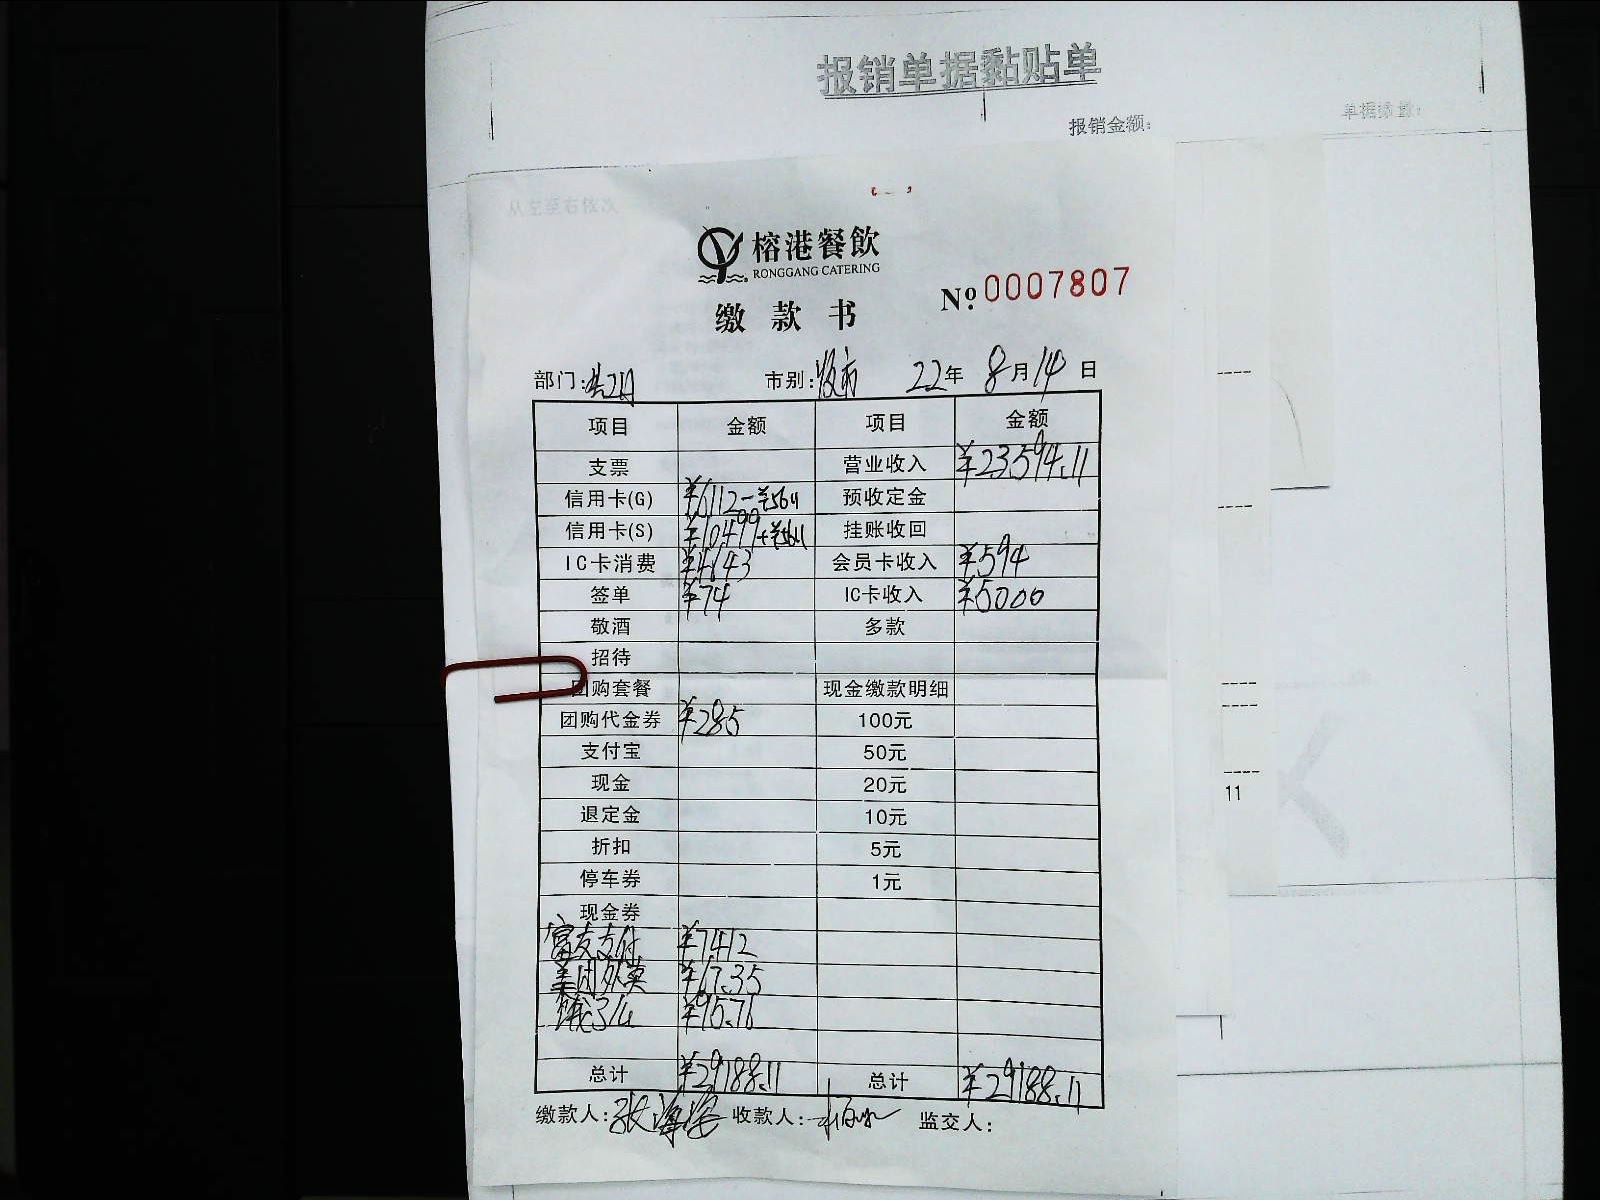 报销单据黏贴单
报销金额:
单据张数:
从左至右依次
榕港餐飲
RONGGANG CATERING
缴款书
No. 0007807
部门: 市别: 夜市 22年 8月14日
项目 金额 项目 金额
支票 营业收入 ¥23594.11
信用卡(G) ¥6112-¥564 预收定金
信用卡(S) ¥10499+¥564 挂账收回
IC卡消费 ¥4643 会员卡收入 ¥594
签单 ¥74 IC卡收入 ¥5000
敬酒 多款
招待
团购套餐 现金缴款明细
团购代金券 ¥285 100元
支付宝 50元
现金 20元
退定金 10元
折扣 5元
停车券 1元
现金券
富友支付 ¥7412
美团外卖 ¥67.35
饿了么 ¥95.76
总计 ¥29188.11 总计 ¥29188.11
缴款人: 收款人: 监交人:
11